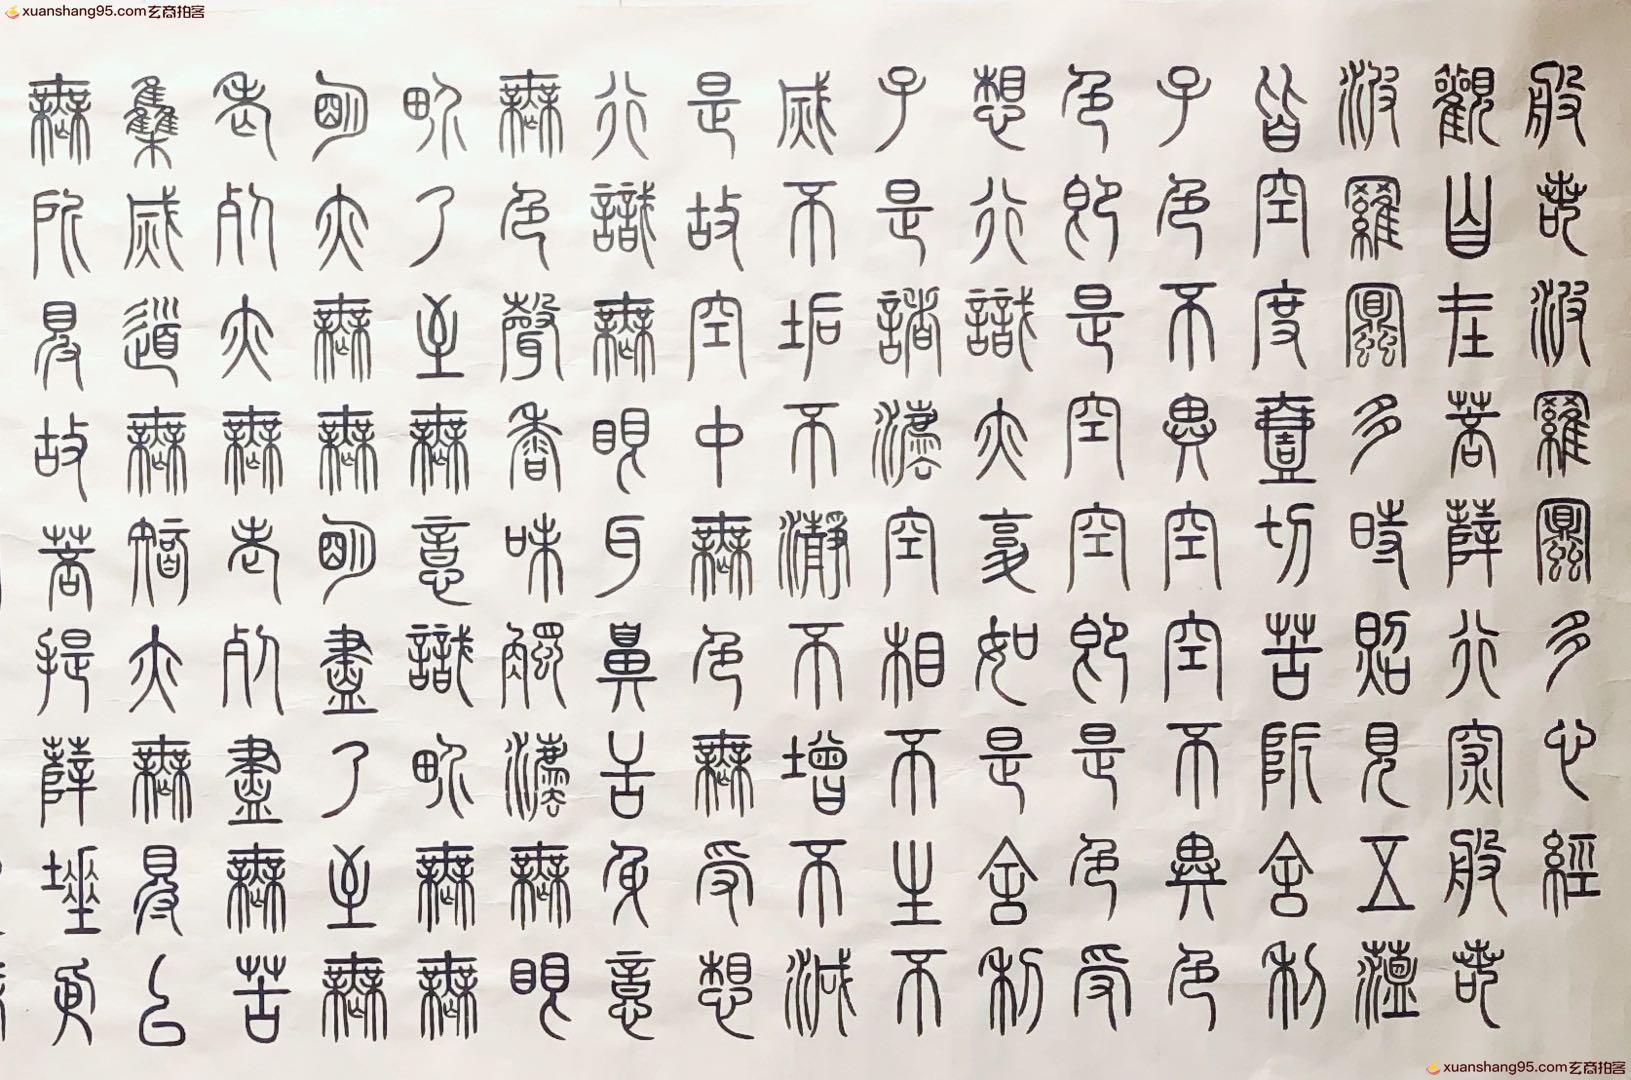 xuanshang95.com玄商拍客
般若波羅蜜多心經
觀自在菩薩行深般若
波羅蜜多時照見五蘊
皆空度壹切苦阨舍利
子色不異空空不異色
色即是空空即是色受
想行識亦復如是舍利
子是諸法空相不生不
滅不垢不瀞不增不減
是故空中無色無受想
行識無眼耳鼻舌身意
無色聲香味觸法無眼
界乃至無意識界無無
明亦無無明盡乃至無
老死亦無老死盡無苦
集滅道無智亦無得以
無所得故菩提薩埵依
xuanshang95.com玄商拍客